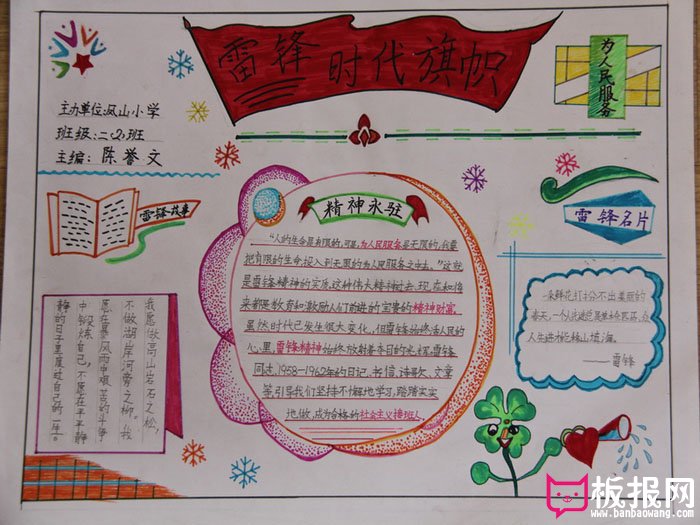 雷锋 时代旗帜
为人民服务
主办单位:凤山小学
班级:二(2)班
主编:陈誉文
雷锋故事
雷锋名片
精神永驻
"人的生命是有限的,可是,为人民服务是无限的,我要
把有限的生命,投入到无限的为人民服务之中去。"这就
是雷锋精神的实质,这种伟大精神过去、现在和将
来都是教育和激励人们前进的宝贵的精神财富。
虽然时代已发生很大变化,但雷锋始终活人民的
心里,雷锋精神始终放射着夺目的光辉。雷锋
同志1958—1962年的日记、书信、诗歌、文章
等,引导我们坚持不懈地学习,踏踏实实
地做,成为合格的社会主义接班人。
我愿做高山岩石之松,
不做湖岸河旁之柳。我
愿在暴风雨中艰苦的斗争
中锻炼自己,不愿在平平静
静的日子里度过自己的一生。
一朵鲜花打扮不出美丽的
春天,一个人先进总是单枪匹马,众
人先进才能移山填海。
——雷锋
板报网
www.banbaowang.com